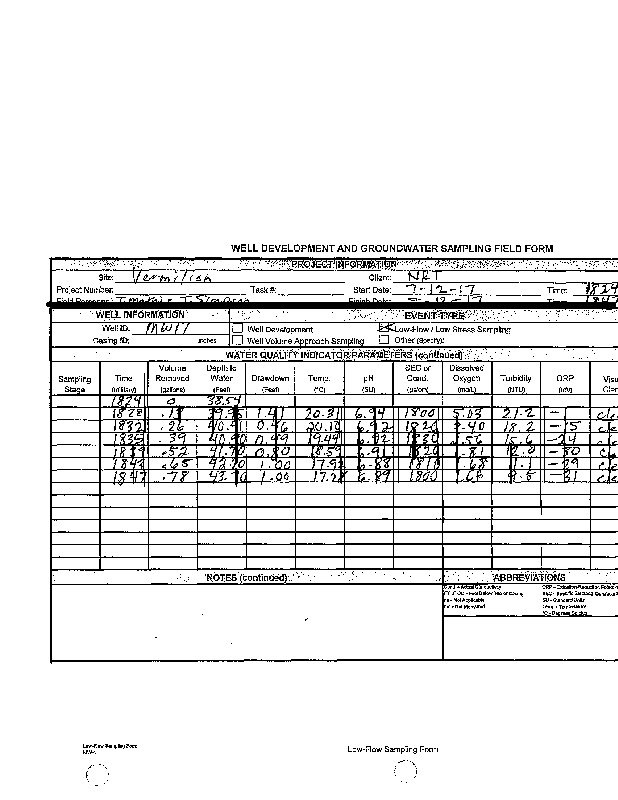 WELL DEVELOPMENT AND GROUNDWATER SAMPLING FIELD FORM
PROJECT INFORMATION
Site: Vermilion Client: NRT
Project Number: Task #: Start Date: 7-12-17 Time: 1824
WELL INFORMATION EVENT TYPE
Well ID: MW17 Well Development Low-Flow / Low Stress Sampling
Casing ID: inches Well Volume Approach Sampling Other (specify):
WATER QUALITY INDICATOR PARAMETERS (continued)
Sampling Stage Time (military) Volume Removed (gallons) Depth to Water (Feet) Drawdown (Feet) Temp. (°C) pH (SU) SEC or Cond. (us/cm) Dissolved Oxygen (mg/L) Turbidity (NTU) ORP (mV)
1824 0 38.54
1828 .13 39.95 1.41 20.31 6.94 1800 5.03 21.2
1832 .26 40.41 0.46 20.10 6.92 1820 2.40 18.2 -15
1835 .39 40.90 0.49 19.44 6.92 1830 1.56 15.6 -24
1839 .52 41.70 0.80 18.59 6.91 1820 1.81 12.0 -30
.65 42.70 1.00 17.92 6.88 1810 1.68 11.1 -29
1847 .78 43.70 1.00 6.89 1800 9.5 -31
NOTES (continued) ABBREVIATIONS
Low-Flow Sampling Form
Low-Flow Sampling Form